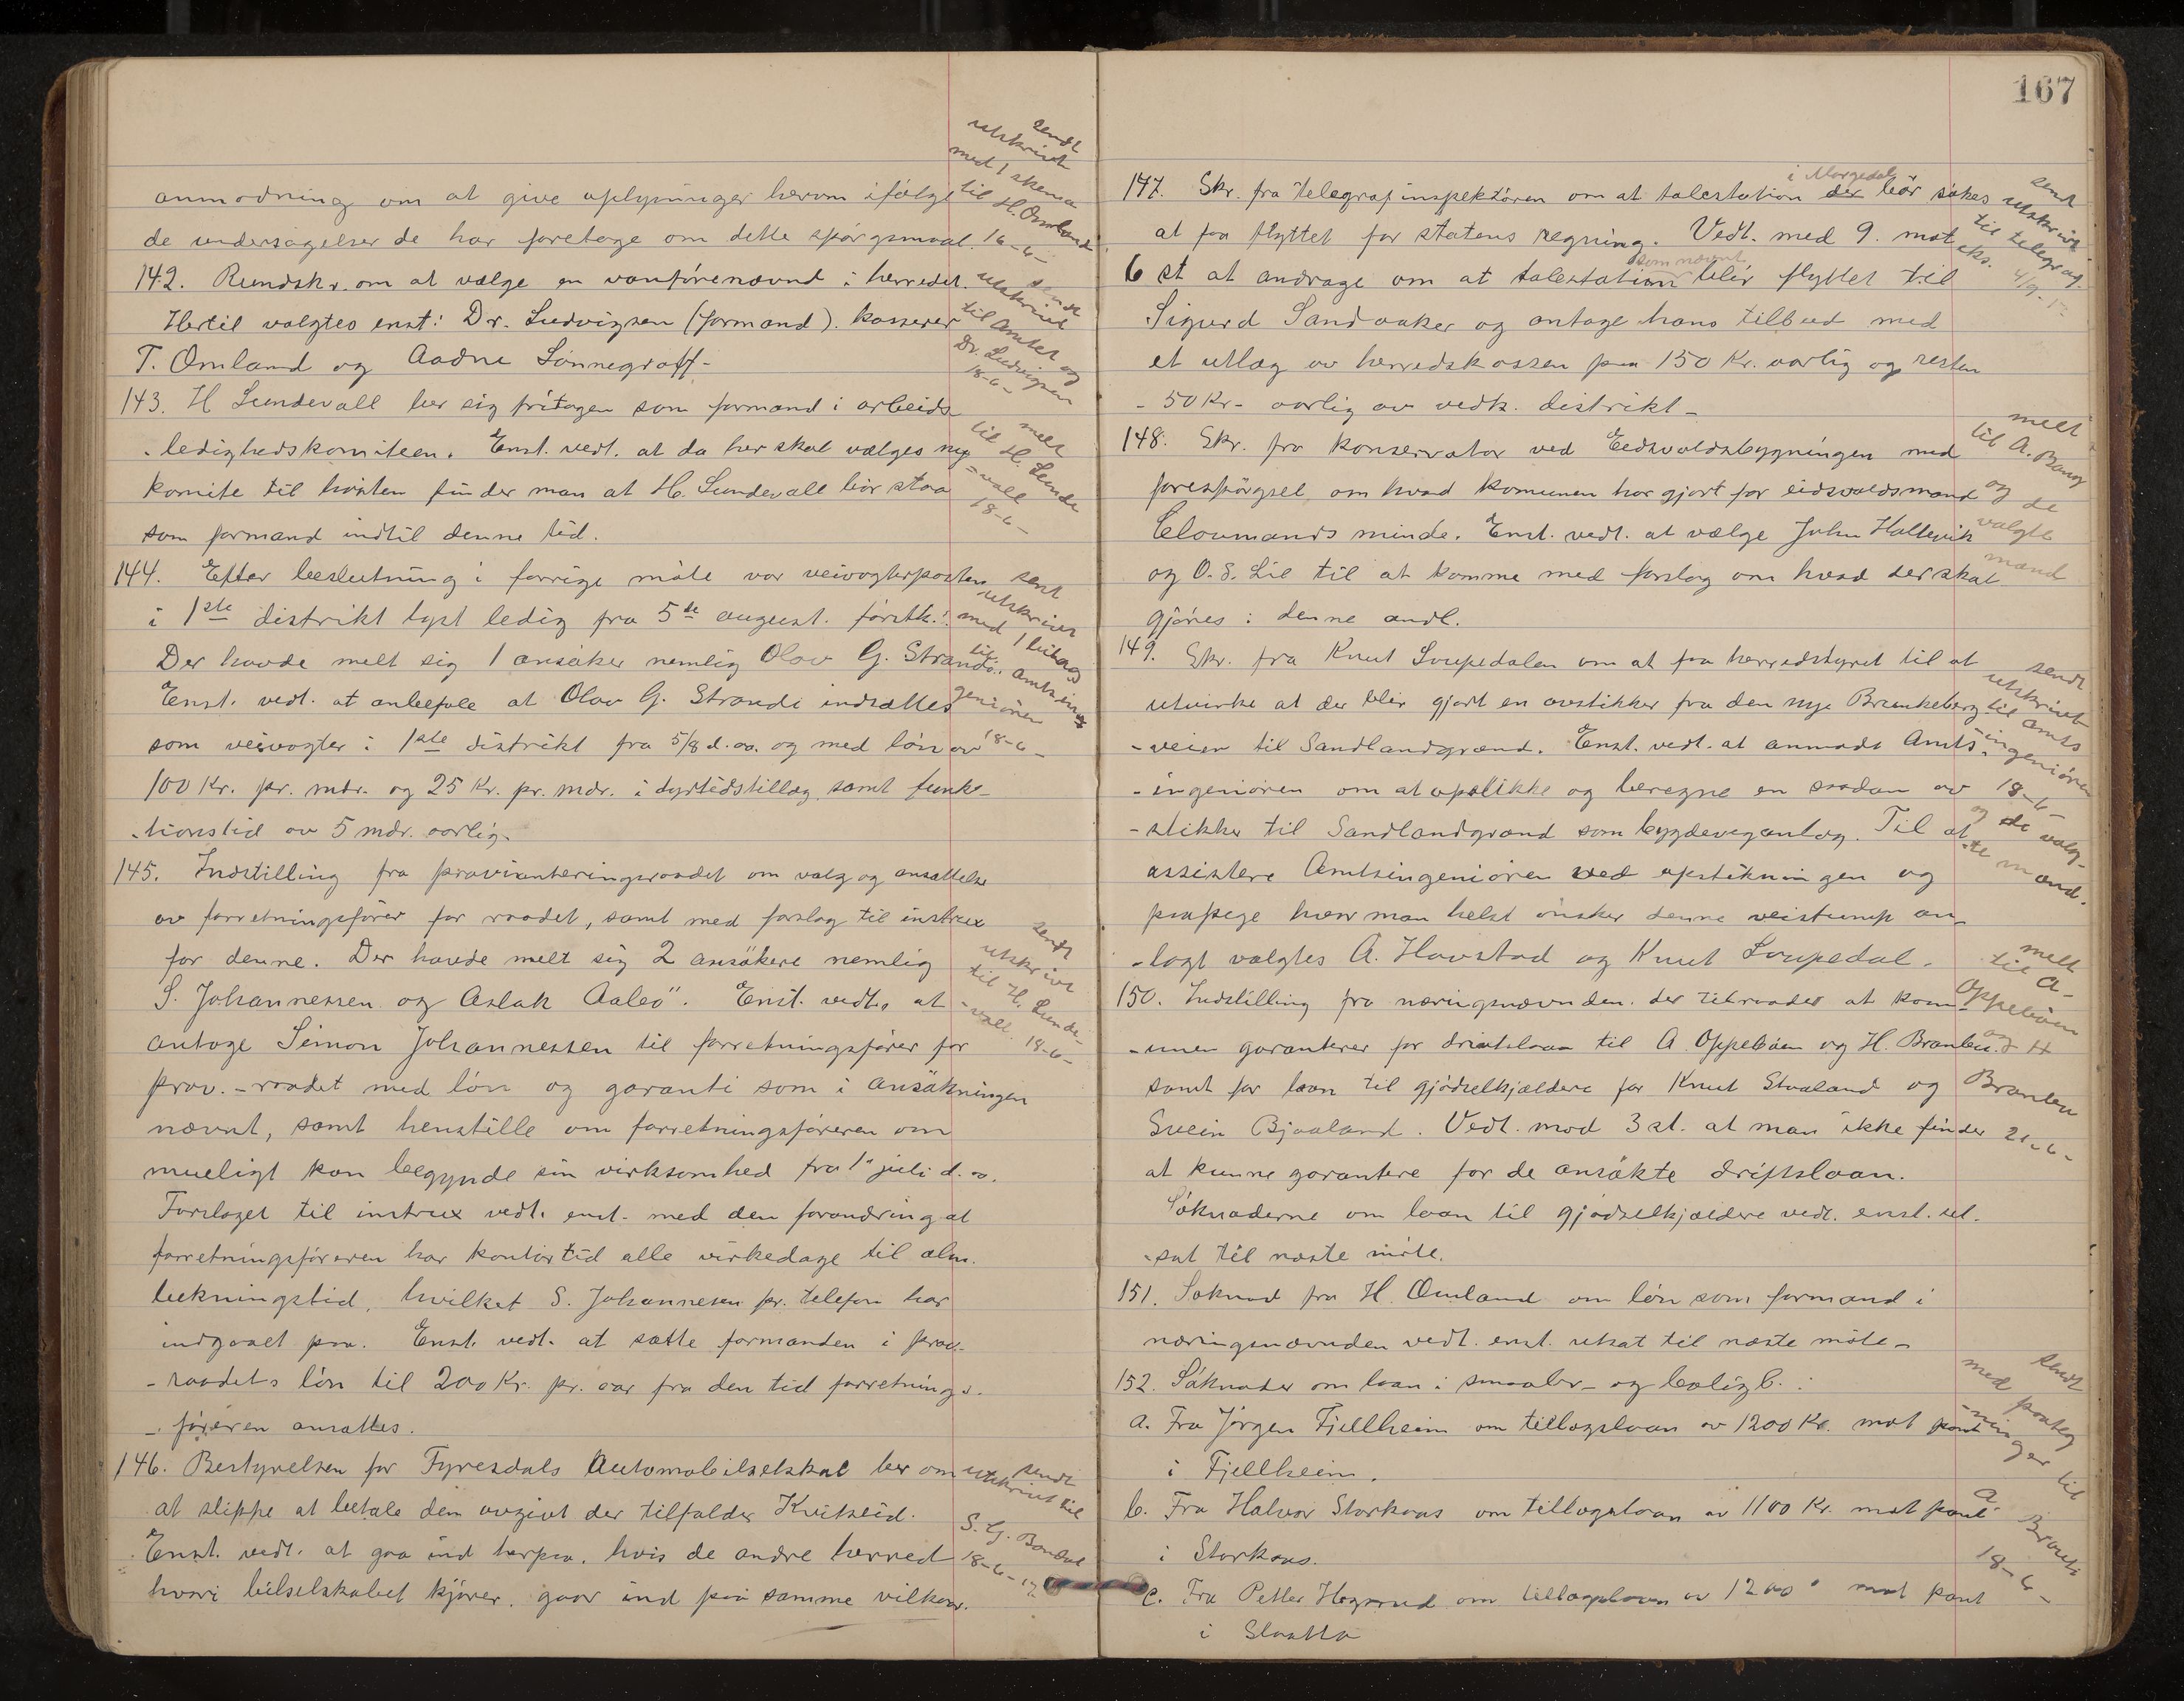 anmodning om at give oplysninger herom ifølge
de undersøgelser de har foretage om dette spørgsmaal.
sendt
utskrivt
med 1 skema
til H. Omland
16-6-
142. Rundskr. om at vælge en vanførenævnd i herredet.
Hertil valgtes enst: Dr. Ludvigsen (formand). kasserer
T. Omland og Aadne Lønnegraff-
sendt
utskrivt
til Amtet og
Dr. Ludvigsen
18-6-
143. H Lundevall ber sig fritagen som formand i arbeids
-ledighedskomiteen. Enst. vedt. at da her skal vælges ny
komite til høsten finder man at H. Lundevall bør staa
som formand indtil denne tid.
melt
til H. Lunde
-vall
18-6-
144. Efter beslutning i forrige møte var veivogterposten
i 1ste distrikt lyst ledig fra 5te august. førstk.
Der havde melt sig 1 ansøker nemlig Olav G. Strandi.
Enst. vedt. at anbefale at Olav G. Strandi indsættes
som veivogter i 1ste distrikt fra 5/8 d. aa. og med løn av
100 Kr. pr. mdr. og 25 Kr. pr. mdr. i dyrtidstillæg samt funk-
-tionstid av 5 mdr. aarlig.
sent
utskrivt
med 1 bilag
til amtsin-
geniøren
18-6-
145. Indstilling fra provianteringsraadet om valg og ansættelse
av forretningsfører for raadet, samt med forslag til instrux
for denne. Der havde melt sig 2 ansøkere nemlig
S. Johannessen og Aslak Aaleö". Enst. vedt. at
antage Simon Johannessen til forretningsfører for
prov.-raadet med løn og garanti som i ansøkningen
nævnt, samt henstille om forretningsføreren om
mueligt kan begynde sin virksomhed fra 1" juli d. a.
Forslaget til instrux vedt. enst. med den forandring at
forretningsføreren har kontortid alle virkedage til alm.
lukningstid, hvilket S. Johannesen pr. telefon har
indgaaet paa. Enst. vedt. at sætte formanden i prov-
-raadets løn til 200 Kr. pr. aar fra den tid forretnings-
-føreren ansættes.
sendt
utskrivt
til H. Lunde-
-vall. 18-6-
146. Bestyrelsen for Fyresdals Automobilselskab ber om
at slippe at betale den avgivt der tilfalder Kviteseid.
Enst. vedt. at gaa ind herpaa, hvis de andre herred
hvori bilselskabet kjører, gaar ind paa samme vilkaar.
sendt
utskrivt til
S. G. Bondal
18-6-17
167
147. Skr. fra Telegrafinspektøren om at talestation der i Morgedal bør søkes
at faa flyttet for statens regning. Vedt. med 9. mot
6 st at andrage om at talestation som nævnt blir flyttet til
Sigurd Sandaaker og antage hans tilbud med
et utlæg av herredskassen paa 150 Kr. aarlig og resten
- 50 Kr- aarlig av vedk. distrikt-
sent
utskrivt
til telegraf.
4/9-17
148. Skr. fra konservator ved Eidsvoldsbygningen med
forespørgsel, om hvad komunen har gjort for eidsvoldsmand
Cloumands minde. Enst. vedt. at vælge John Hallevik
og O. S. Lil til at komme med forslag om hvad der skal
gjøres i denne andl.
melt
til A. Bang
og de
valgte
mænd
149. Skr. fra Knut Loupedalen om at faa herredstyret til at
utvirke at der blir gjort en avstikker fra den nye Brunkeberg
-veien til Sandlandgrænd. Enst. vedt. at anmode Amts-
-ingeniøren om at opstikke og beregne en saadan av
-stikker til Sandlandgrænd som bygdeveganlæg. Til at
assistere Amtsingeniøren ved opstikningen og
paapege hvor man helst ønsker denne veistump an-
-lagt valgtes A. Havstad og Knut Loupedal.
sendt
utskrivt
til amts
ingeniøren
18-6-
og de valg-
-te mænd.
150. Indstilling fra næringsnævnden. der tilraader at kom-
-unen garanterer for driftslaan til A. Oppebøen og H. Branlen
samt for laan til gjødselkjældere for Knut Staaland og
Svein Bjaaland. Vedt. mod 3 st. at man ikke finder
at kunne garantere for de ansøkte driftslaan.
Søknaderne om laan til gjødselkjældere vedt. enst. ut-
-sat til næste møte.
melt
til A-
Oppebøen
og H
Branlen
21-6-
151. Søknad fra H. Omland om løn som formand i
næringsnævnden vedt. enst. utsat til næste møte-
152. Søknader om laan i smaabr- og boligb. :
a. Fra Jørgen Fjellheim om tillægslaan av 1200 Kr. mot pant
i Fjellheim.
b. Fra Halvor Storkaas om tillægslaan av 1100 Kr. mot pant
i Storkaas.
c. Fra Petter Hegnrud om tillægslaan av 1200" mot pant
i Slaatta
sendt
med paateg
-ninger til
A.
18-6-